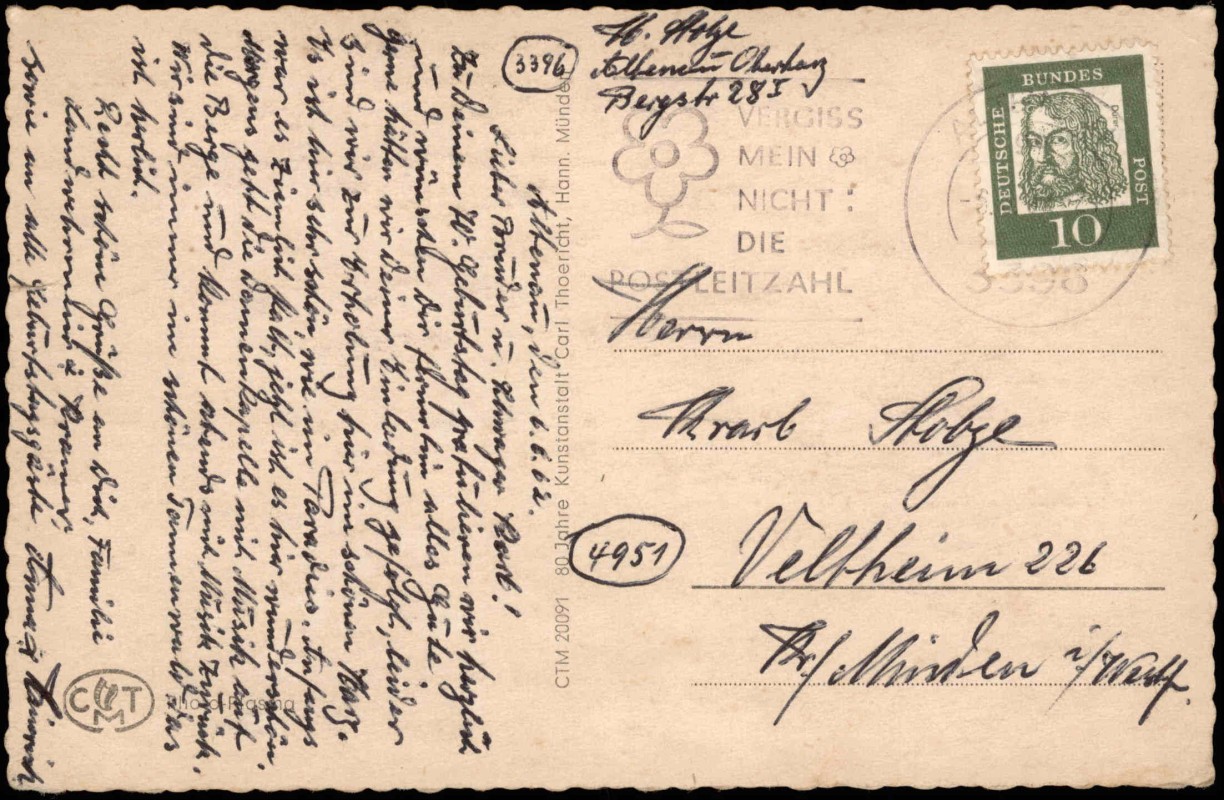 H. Stolze
Altenau Oberharz
Bergstr 28 I
3396
VERGISS
MEIN
NICHT:
DIE
POSTLEITZAHL
3396
DEUTSCHE BUNDES POST
Dürer
10
Herrn
Stolze
4951
Veltheim 226
Kr/Minden i/Westf.
CTM 20091 80 Jahre Kunstanstalt Carl Thoericht, Hann. Münden
Altenau, den 6.6.62.
Lieber Bruder u. Schwager
Zu Deinem Geburtstag gratulieren wir herzlich
und wünschen Dir fernerhin alles Gute,
gerne hätten wir deiner Einladung gefolgt, leider
sind wir zur Erholung hier im schönen Harz.
Es ist hier sehr schön, wie im Paradies. Anfangs
war es ziemlich kalt, jetzt ist es hier wunderschön,
Morgens geht die Damenkapelle mit Musik auf
die Berge und kommt abends mit Musik zurück.
Wir sind immer im schönen Tannenwald das
ist herlich.
Recht schöne Grüße an dich, Familie
Landwehrmann u. Kraemer,
sowie an alle Geburtstagsgäste Anna u. Heinrich
CTM
Photo-Prasma